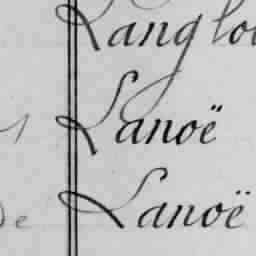 Langlo
1 Lanoë
de Lanoë